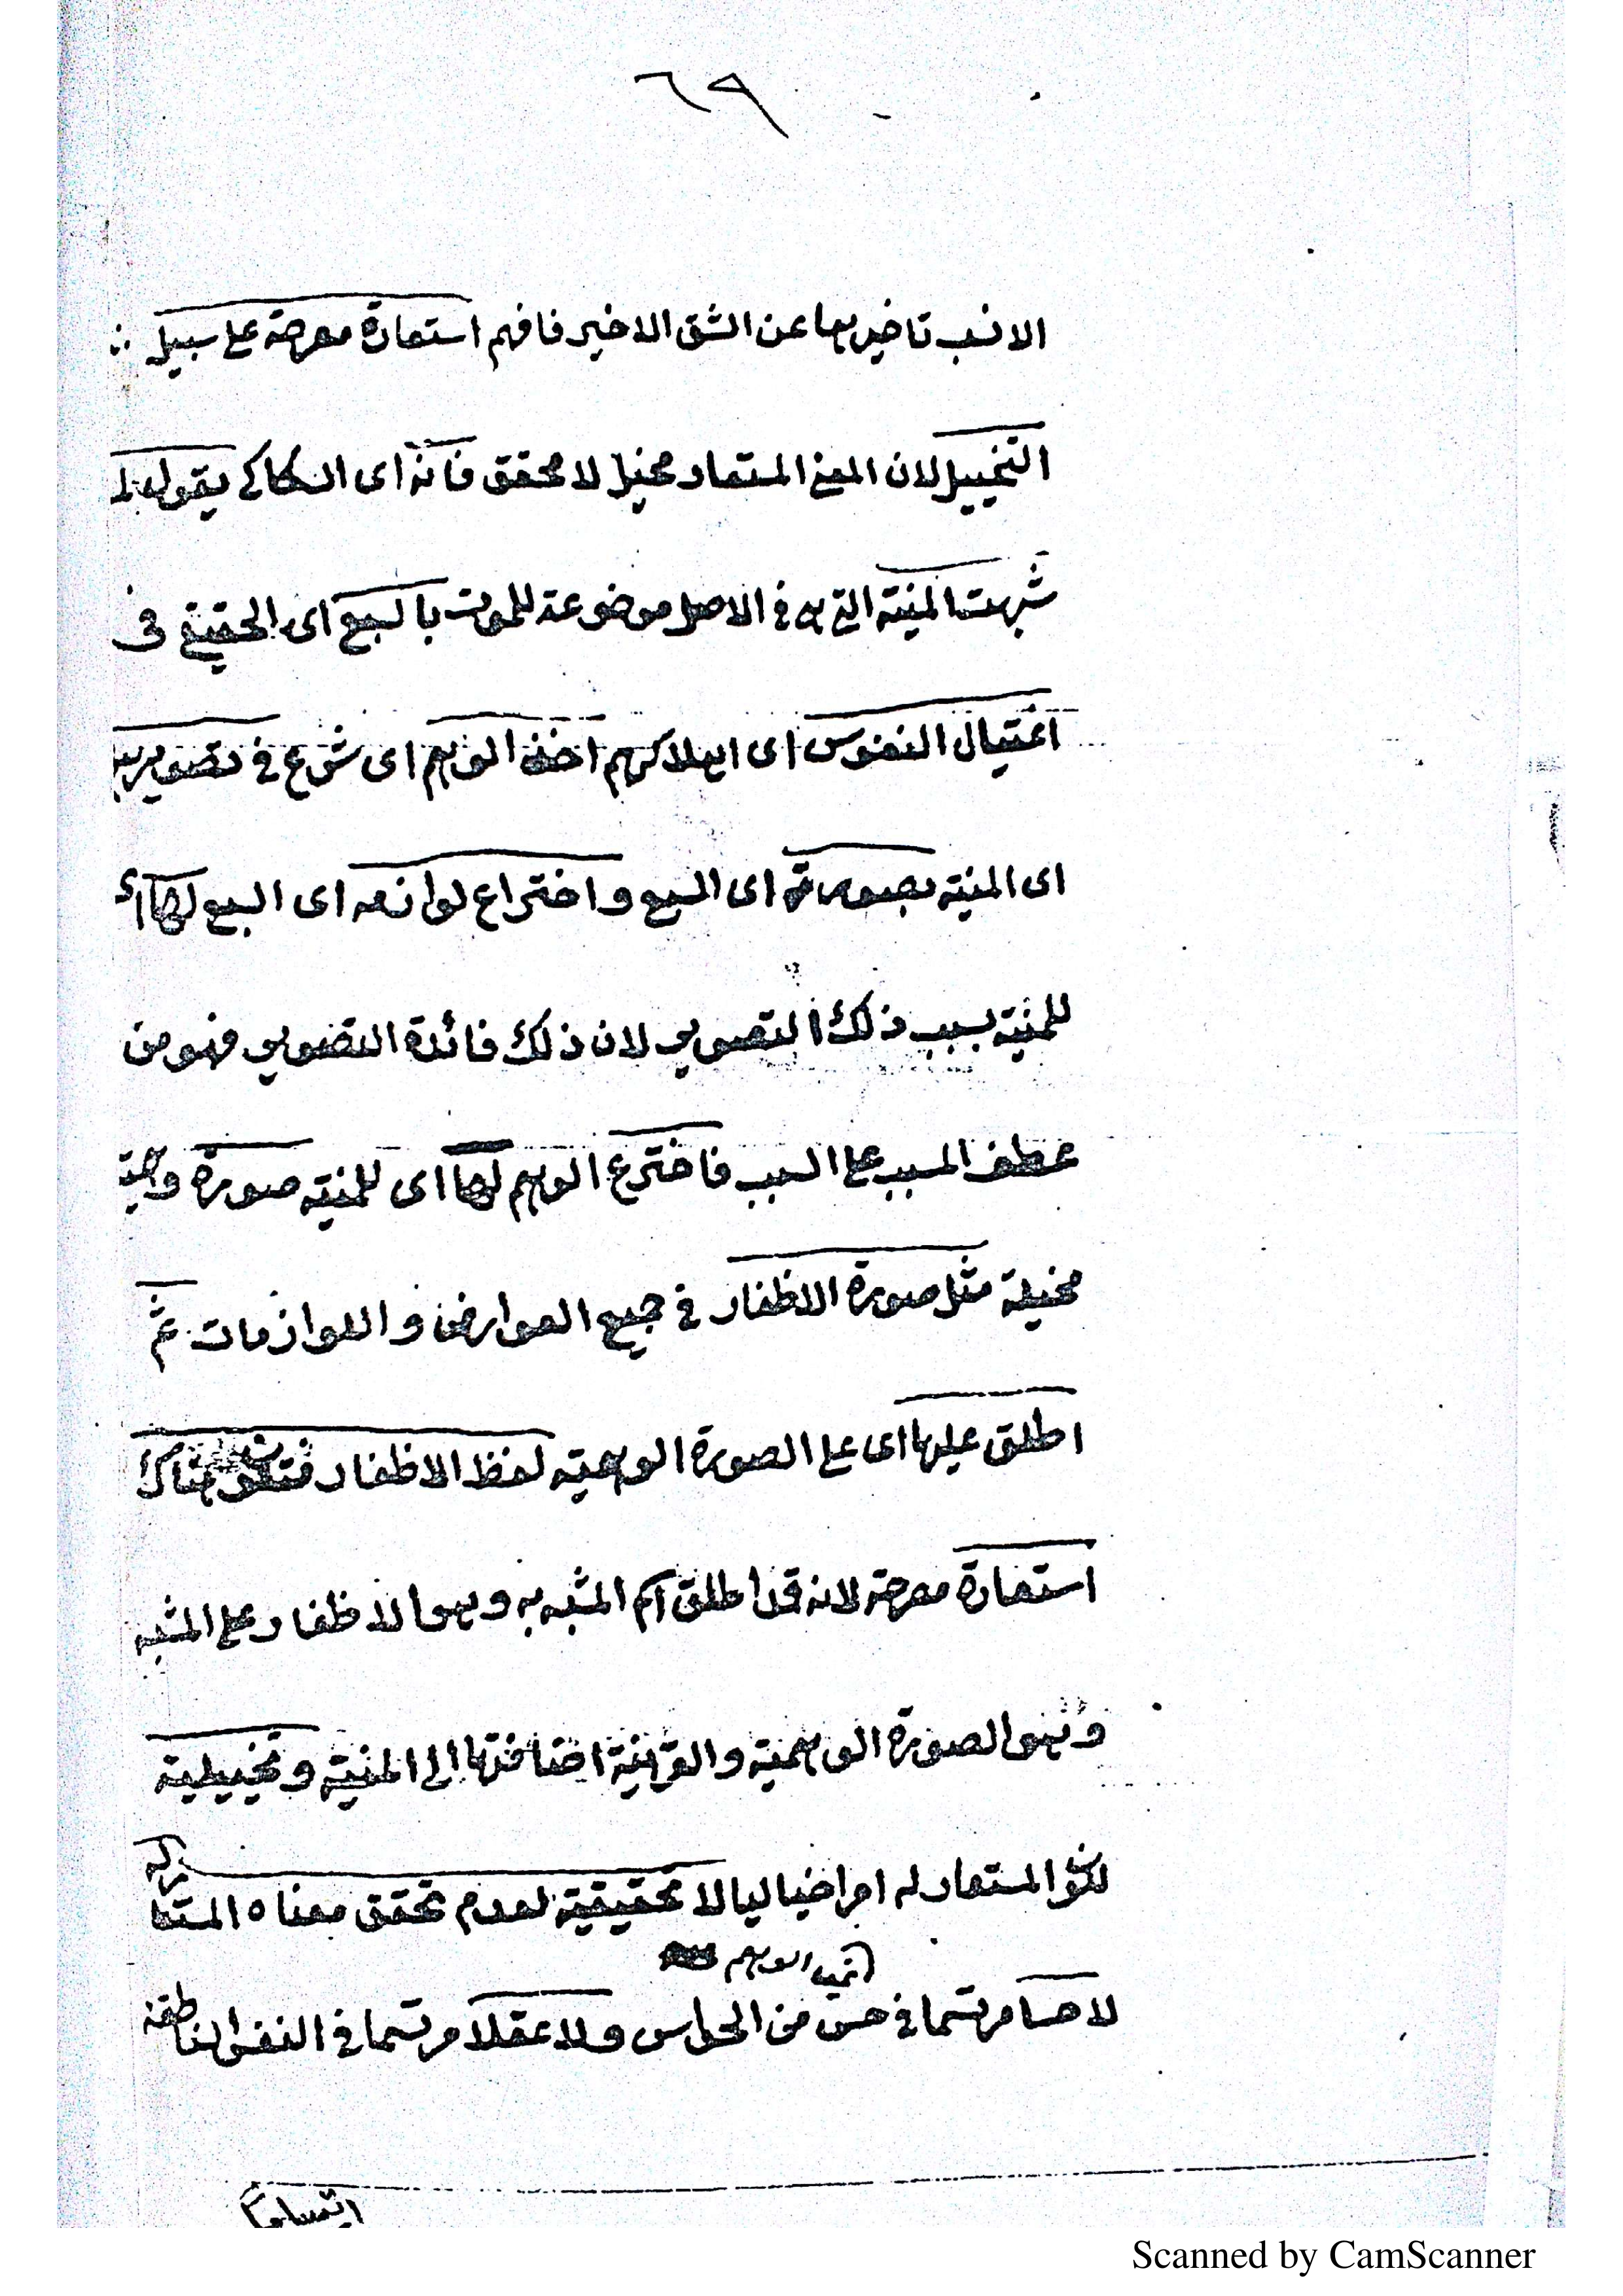 ٦٩
الانسب تاخيرها عن الشق الاخير فافهم استعارة مصرحة على سبيل
التخييل لان المعنى المستعار مخيل لا محقق فانه اى السكاكى يقول لما
شبهت المنية التى هى فى الاصل موضوعة للموت بالسبع اى الحقيقى فى
اغتيال النفوس اى اهلاكهم اخذ الوهم اى شرع فى تصويرها
اى المنية بصورته اى السبع واختراع لوازمه اى السبع لها اى
للمنية بسبب ذلك التصوير لان ذلك فائدة التصوير فهو من
عطف المسبب على السبب فاخترع الوهم لها اى للمنية صورة وهمية
مخيلة مثل صورة الاظفار فى جميع العوارض واللوازمات ثم
اطلق عليها اى على الصورة الوهمية لفظ الاظفار فتكون هناك
استعارة مصرحة لانه قد اطلق اسم المشبه به وهو الاظفار على المشبه
وهو الصورة الوهمية والقرينة اضافتها الى المنية وتخييلية
لكون المستعار له امرا خياليا لا تحقيقية لعدم تحقق معناه المستعار له
لا حسا مرتسما فى حس من الحواس ولا عقلا مرتسما فى النفس الناطقة
Scanned by CamScanner